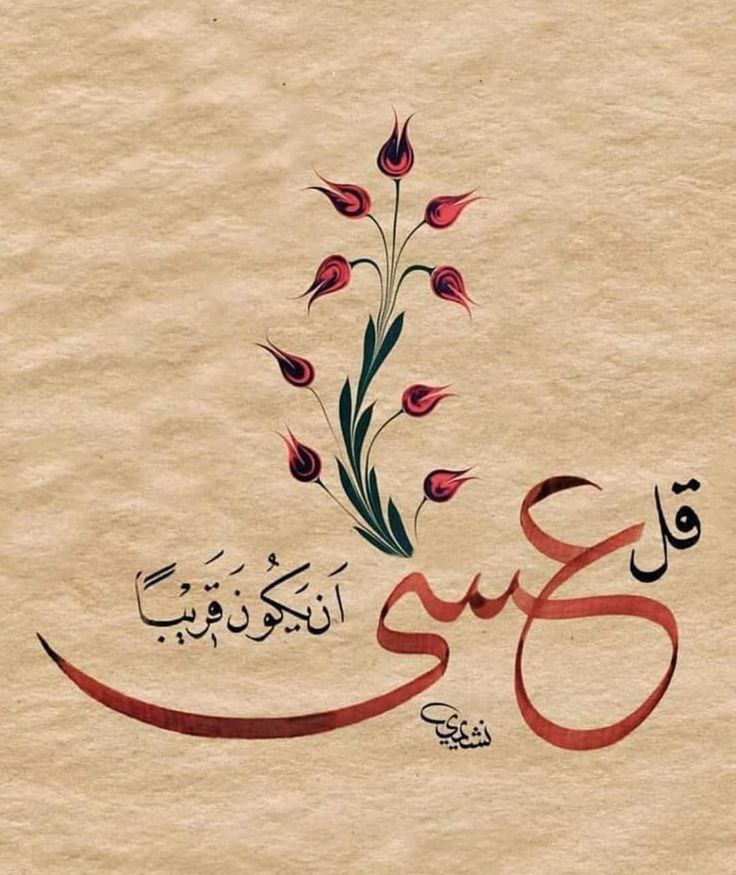 قل عسى اَن يَكُونَ قَرِيْبًا
نشليري